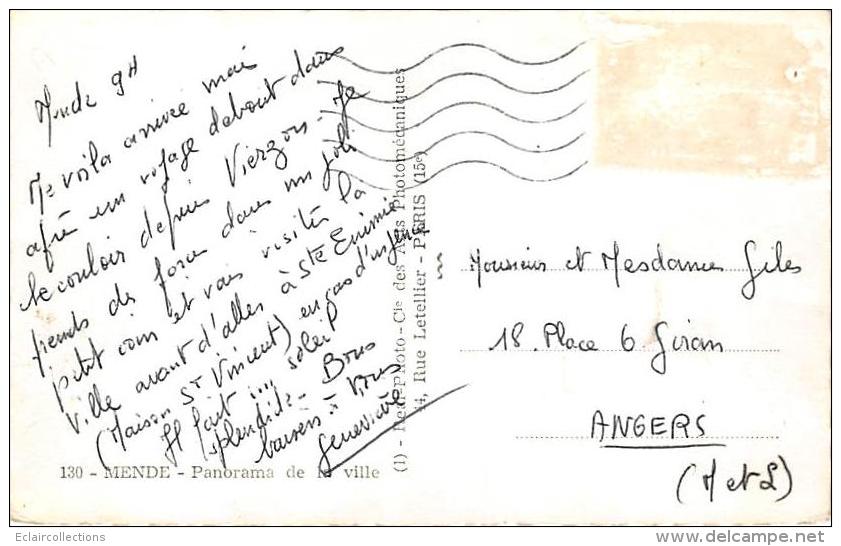 Mende 9H
Me voila arrivée mais
après un voyage debout dans
le couloir depuis Vierzon - Je
prends des forces dans un joli
petit coin et vais visiter la
ville avant d'aller à Ste Enimie
(Maison St Vincent) en cas d'urgence
Il fait .... soleil
splendide - Bons
baisers à vous
Geneviève
130 - MENDE - Panorama de la ville
(1) - Real-Photo - Cie des Arts Photomécaniques
44, Rue Letellier - PARIS (15e)
Monsieur et Mesdames Giles
18. Place G Giran
ANGERS
(M et L)
Eclaircollections
www.delcampe.net